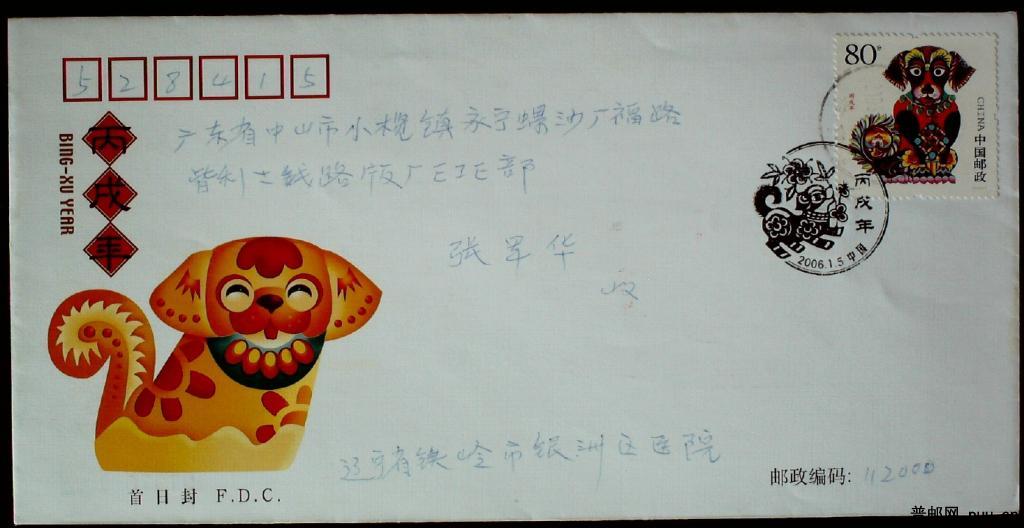 528415
丙戌年
BING-XU YEAR
80分
丙戌年
CHINA 中国邮政
丙戌年
2006.1.5 中国
广东省中山市小榄镇永宁螺沙广福路
皆利士线路版厂E工E部
张军华
收
辽宁省铁岭市银洲区医院
邮政编码: 112000
首日封 F.D.C.
普邮网 puu.cn